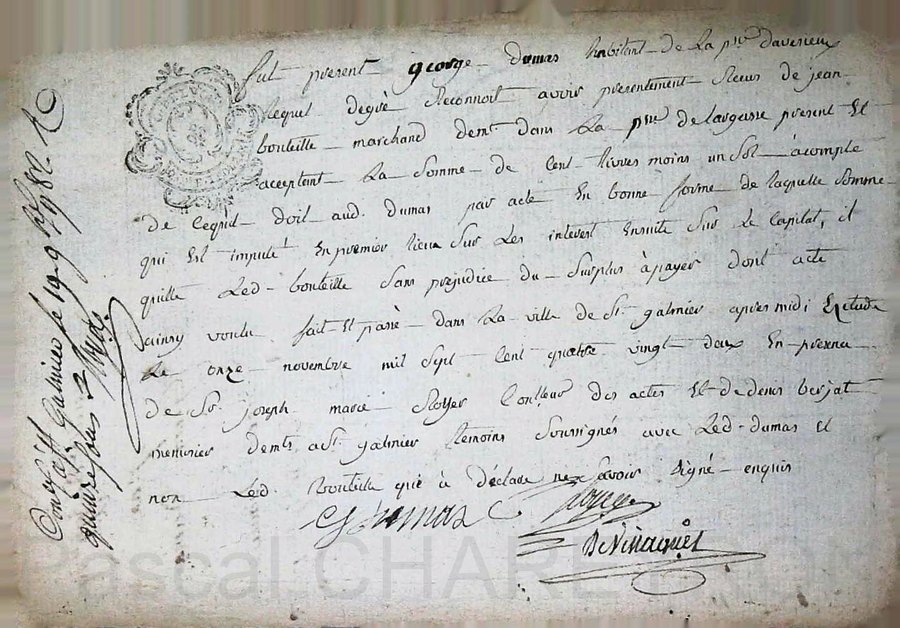 fut present george dumas habitant de La psse daverieu
Lequel degré Reconnoit avoir presentement Receu de jean
bouteille marchand demt dans La psse delargasse present Et
aceptent La Somme de Cent Livres moins un Sol acompte
de Cequil doit aud. dumas par acte En bonne forme de laquelle Somme
qui Est imputé En premier Lieux Sur Les interest Ensuite Sur Le Capital, il
quitte Led. bouteille Sans prejudice du Surplus apayer dont acte
ainsy voulu fait Et passé dans La ville de St. galmier apres midi Etude
Le onze novembre mil Sept Cent quatre vingt deux En presence
de Sr. joseph marie Royer Conlleur des actes Et de denis berjat
menuisier demts a St. galmier temoins Soussignés avec Led. dumas et
non Led. Bouteille que a déclaré ne Savoir Signé enquis
G Dumas
Royer
St Galmier le 19 9bre 1782
quinze Sous
Pascal CHAREYRON